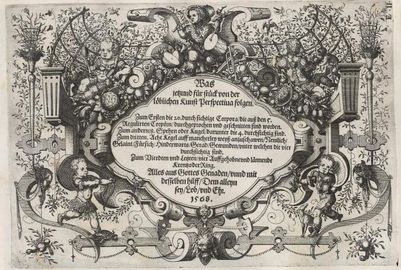 Was
jetzund für stück von der
löblichen Kunst Perspectiua folgen.
Zum Ersten die 20. durchsichtige Corpora/ die auß den 5.
Regulirten Corpern/ durchgeprochen vnd geschnitten sind worden.
Zum andern Spehen oder Kugel darunter die 4. durchsichtig sind.
Zum dritten, Acht Kegel auff mancherley weyß anzuschawen/ Nemlich/
Gelaint/ Fürsich/ Hinderwarts/ Gerad/ Gewunden/ vnter welchen die vier
durchsichtig sind.
Zum Vierdten vnd Letzten/ vier Auffgehobne vnd lainende
Krentz oder Ring.
Alles aus Gottes Genaden/ vnnd mit
desselben hilff/ Dem alleyn
sey/ Lob/ vnd Ehr.
1568.